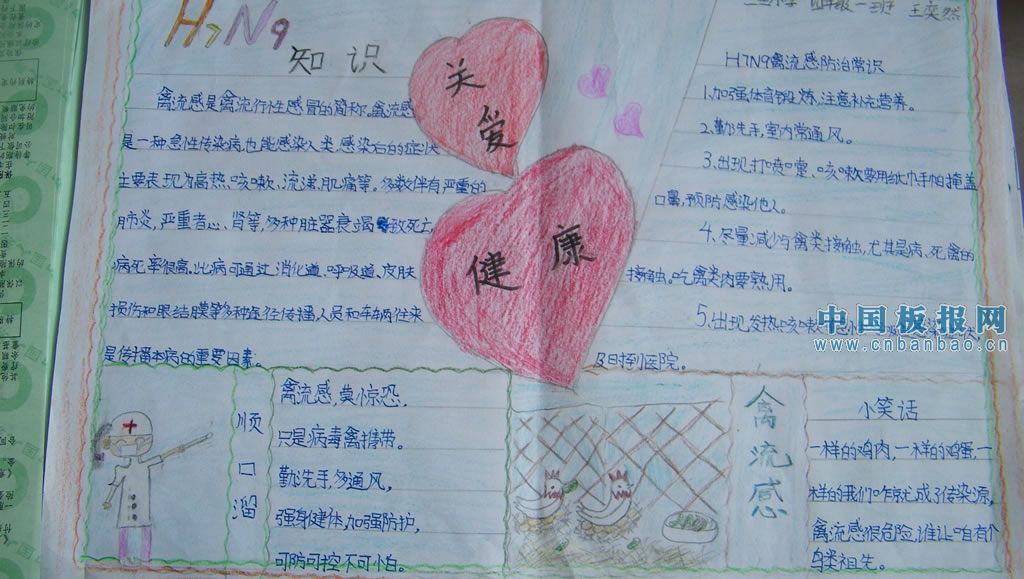 H7N9
知识
禽流感是禽流行性感冒的简称,禽流感
是一种急性传染病,也能感染人类,感染后的症状
主要表现为高热、咳嗽、流涕、肌痛等。多数伴有严重的
肺炎,严重者心、肾等,多种脏器衰竭致死亡,
病死率很高。此病可通过消化道、呼吸道、皮肤
损伤和眼结膜等多种途径传播人员和车辆往来
是传播本病的重要因素。
关
爱
健康
四年级一班 王奕然
H7N9禽流感防治常识
1.加强体育锻炼,注意补充营养。
2.勤洗手,室内常通风。
3.出现打喷嚏、咳嗽要用纸巾手帕掩盖
口鼻,预防感染他人。
4.尽量减少与禽类接触,尤其是病、死禽的
接触。吃禽类肉要熟用。
5.出现发热、咳嗽
及时到医院。
中国板报网
www.cnbanbao.cn
顺口溜
禽流感,莫惊恐,
只是病毒禽携带。
勤洗手,多通风,
强身健体,加强防护,
可防可控不可怕。
禽流感
小笑话
一样的鸡肉,一样的鸡蛋,一
样的我们咋就成了传染源,
禽流感很危险,谁让咱有个
鸟类祖先。